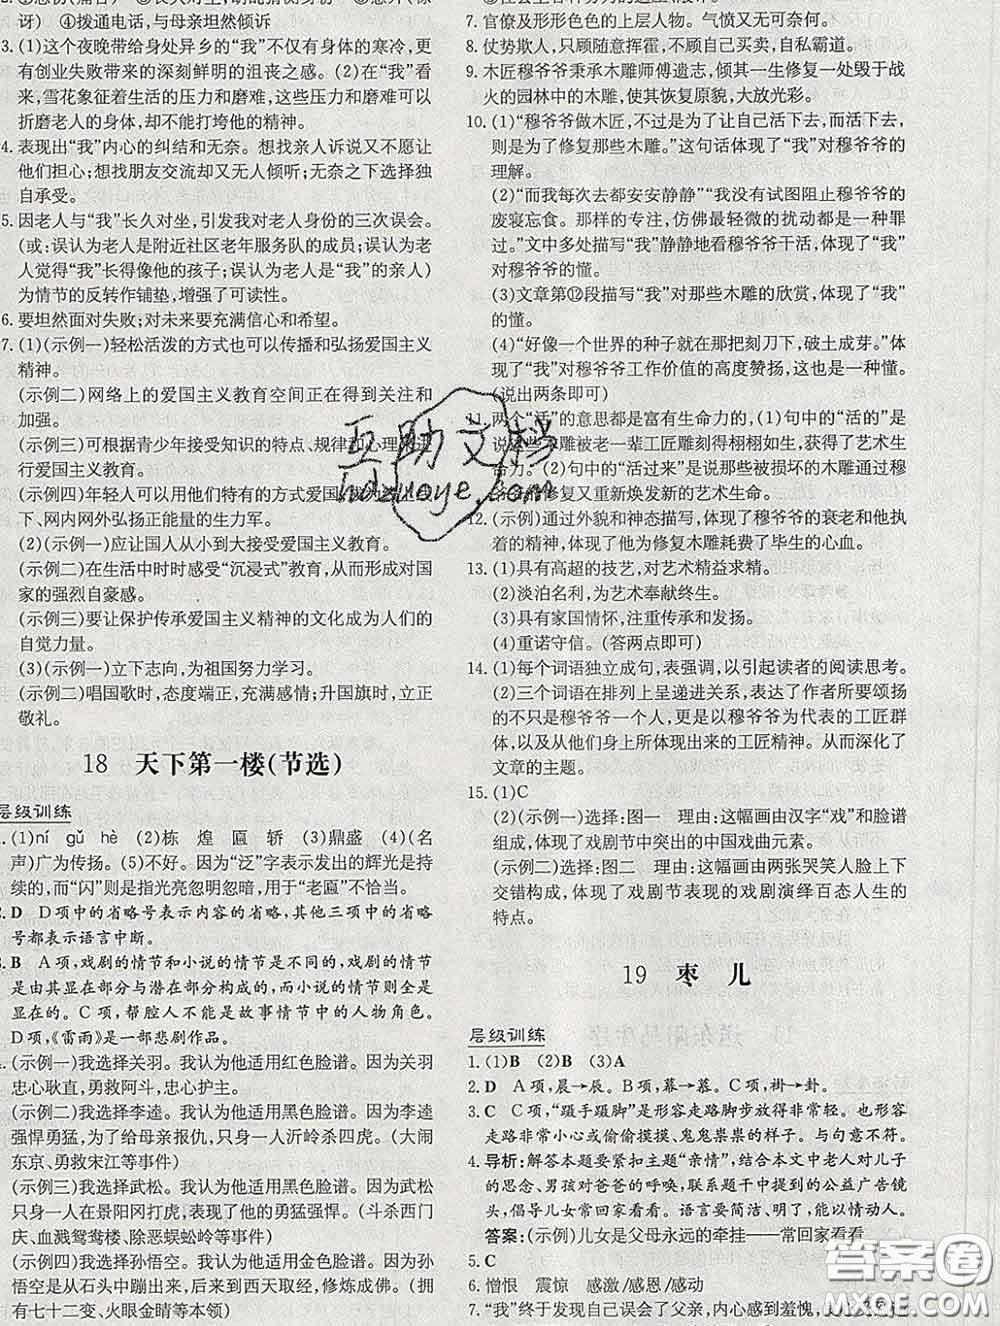 讶)　④拨通电话，与母亲坦然倾诉
3. (1)这个夜晚带给身处异乡的“我”不仅有身体的寒冷，更
有创业失败带来的深刻鲜明的沮丧之感。(2)在“我”看
来，雪花象征着生活的压力和磨难，这些压力和磨难可以
折磨老人的身体，却不能打垮他的精神。
4. 表现出“我”内心的纠结和无奈。想找亲人诉说又不愿让
他们担心；想找朋友交流却又无人倾听；无奈之下选择独
自承受。
5. 因老人与“我”长久对坐，引发我对老人身份的三次误会。
(或：误认为老人是附近社区老年服务队的成员；误认为老
人觉得“我”长得像他的孩子；误认为老人是“我”的亲人)
为情节的反转作铺垫，增强了可读性。
6. 要坦然面对失败；对未来要充满信心和希望。
7. (1)(示例一)轻松活泼的方式也可以传播和弘扬爱国主义
精神。
(示例二)网络上的爱国主义教育空间正在得到关注和
加强。
(示例三)可根据青少年接受知识的特点、规律和心理进
行爱国主义教育。
(示例四)年轻人可以用他们特有的方式爱国，成为
下、网内网外弘扬正能量的生力军。
(2)(示例一)应让国人从小到大接受爱国主义教育。
(示例二)在生活中时时感受“沉浸式”教育，从而形成对国
家的强烈自豪感。
(示例三)要让保护传承爱国主义精神的文化成为人们的
自觉力量。
(3)(示例一)立下志向，为祖国努力学习。
(示例二)唱国歌时，态度端正，充满感情；升国旗时，立正
敬礼。
18　天下第一楼(节选)
层级训练
(1)ní　gǔ　hè　(2)栋　煌　匾　轿　(3)鼎盛　(4)(名
声)广为传扬。(5)不好。因为“泛”字表示发出的辉光是持
续的，而“闪”则是指光亮忽明忽暗，用于“老匾”不恰当。
D　D项中的省略号表示内容的省略，其他三项中的省略
号都表示语言中断。
B　A项，戏剧的情节和小说的情节是不同的，戏剧的情节
是由其显在部分与潜在部分构成的，而小说的情节则全是
显在的。C项，帮腔人不能是故事中的人物角色。
D项，《雷雨》是一部悲剧作品。
(示例一)我选择关羽。我认为他适用红色脸谱。因为关羽
忠心耿直，勇救阿斗，忠心护主。
(示例二)我选择李逵。我认为他适用黑色脸谱。因为李逵
强悍勇猛，为了给母亲报仇，只身一人沂岭杀四虎。(大闹
东京、勇救宋江等事件)
(示例三)我选择武松。我认为他适用黑色脸谱。因为武松
只身一人在景阳冈打虎，表现了他的勇猛强悍。(斗杀西门
庆、血溅鸳鸯楼、除恶蜈蚣岭等事件)
(示例四)我选择孙悟空。我认为他适用金色脸谱。因为孙
悟空是从石头中蹦出来，后来到西天取经，修炼成佛。(拥
有七十二变、火眼金睛等本领)
7. 官僚及形形色色的上层人物。气愤又无可奈何。
8. 仗势欺人，只顾随意挥霍，不顾自己买卖，自私霸道。
9. 木匠穆爷爷秉承木雕师傅遗志，倾其一生修复一处毁于战
火的园林中的木雕，使其恢复原貌，大放光彩。
10. (1)“穆爷爷做木匠，不过是为了让自己活下去，而活下去，
则是为了修复那些木雕。”这句话体现了“我”对穆爷爷的
理解。
(2)“而我每次去都安安静静”“我没有试图阻止穆爷爷的
废寝忘食。那样的专注，仿佛最轻微的扰动都是一种罪
过。”文中多处描写“我”静静地看穆爷爷干活，体现了“我”
对穆爷爷的懂。
(3)文章第⑫段描写“我”对那些木雕的欣赏，体现了“我”
的懂。
(4)“好像一个世界的种子就在那把刻刀下，破土成芽。”体
现了“我”对穆爷爷工作价值的高度赞扬，这也是一种懂。
(说出两条即可)
11. 两个“活”的意思都是富有生命力的，(1)句中的“活的”是
说这些木雕被如老一辈工匠雕刻得栩栩如生，获得了艺术生
命力。(2)句中的“活过来”是说那被损坏的木雕通过穆
爷爷修复又重新焕发新的艺术生命。
12. (示例)通过外貌和神态描写，体现了穆爷爷的衰老和他执
着的精神，同时体现了他为修复木雕耗费了毕生的心血。
13. (1)具有高超的技艺，对艺术精益求精。
(2)淡泊名利，为艺术奉献终生。
(3)具有家国情怀，注重传承和发扬。
(4)重诺守信。(答两点即可)
14. (1)每个词语独立成句，表强调，以引起读者的阅读思考。
(2)三个词语在排列上呈递进关系，表达了作者所要颂扬
的不只是穆爷爷一个人，更是以穆爷爷为代表的工匠群
体，以及从他们身上所体现出来的工匠精神。从而深化了
文章的主题。
15. (1)C
(2)(示例一)选择：图一　理由：这幅画由汉字“戏”和脸谱
组成，体现了戏剧节中突出的中国戏曲元素。
(示例二)选择：图二　理由：这幅画由两张哭笑人脸上下
交错构成，体现了戏剧节表现的戏剧演绎百态人生的
特点。
19　枣　儿
层级训练
1. (1)B　(2)B　(3)A
2. D　A项，晨→辰。B项，幕→慕。C项，褂→卦。
3. C　C项，“蹑手蹑脚”是形容走路脚步放得非常轻。也形容
走路非常小心或偷偷摸摸、鬼鬼祟祟的样子。与句意不符。
4. 导析：解答本题要紧扣主题“亲情”，结合本文中老人对儿子
的思念、男孩对爸爸的呼唤，联系题干中提到的公益广告镜
头，倡导儿女常回家看看。语言要简洁、明了，能以情动人。
答案：(示例)儿女是父母永远的牵挂——常回家看看。
5. C
6. 憎恨　震惊　感激/感恩/感动
7. “我”终于发现自己误会了父亲，内心感到羞愧，
互助文档
hdzuoye.com
答案圈
MXQE.COM